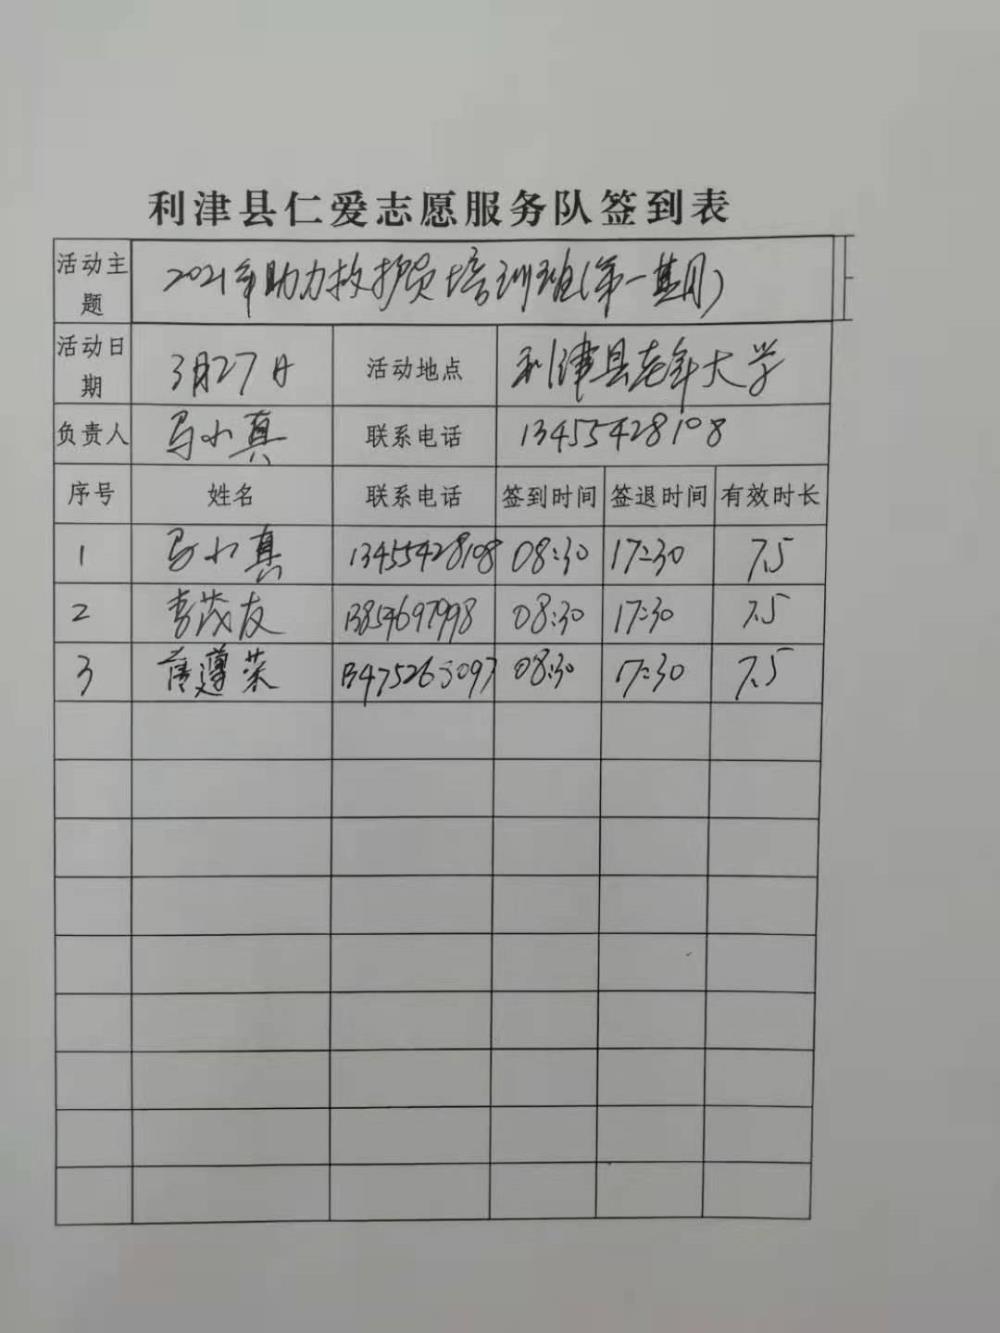 利津县仁爱志愿服务队签到表
活动主题 2021年助力救护员培训班(第一期)
活动日期 3月27日 活动地点 利津县老年大学
负责人 马小真 联系电话 13455428108
序号 姓名 联系电话 签到时间 签退时间 有效时长
1 马小真 13455428108 08:30 17:30 7.5
2 李茂友 13854697998 08:30 17:30 7.5
3 薛遵荣 13475265097 08:30 17:30 7.5